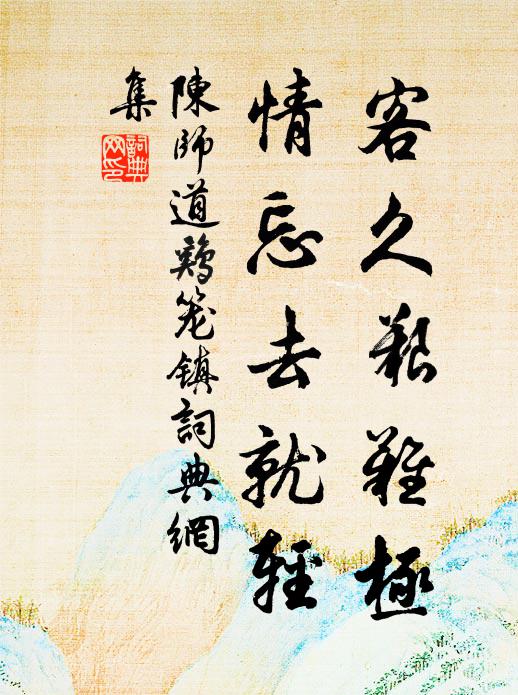 客久艱難極
情忘去就輕
陳師道鷄笼镇詞典網
集
詞典
网印